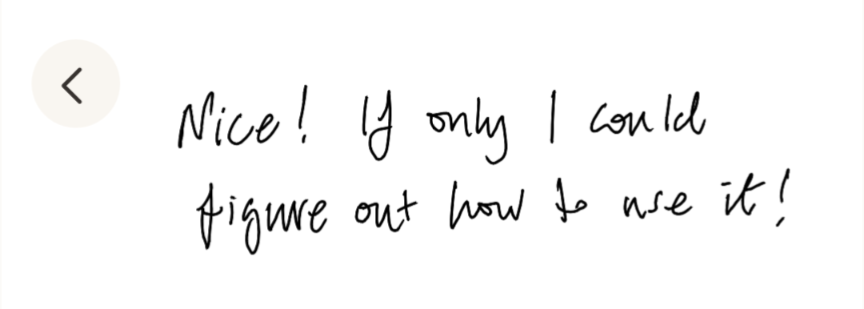 Nice! If only I could
figure out how to use it!